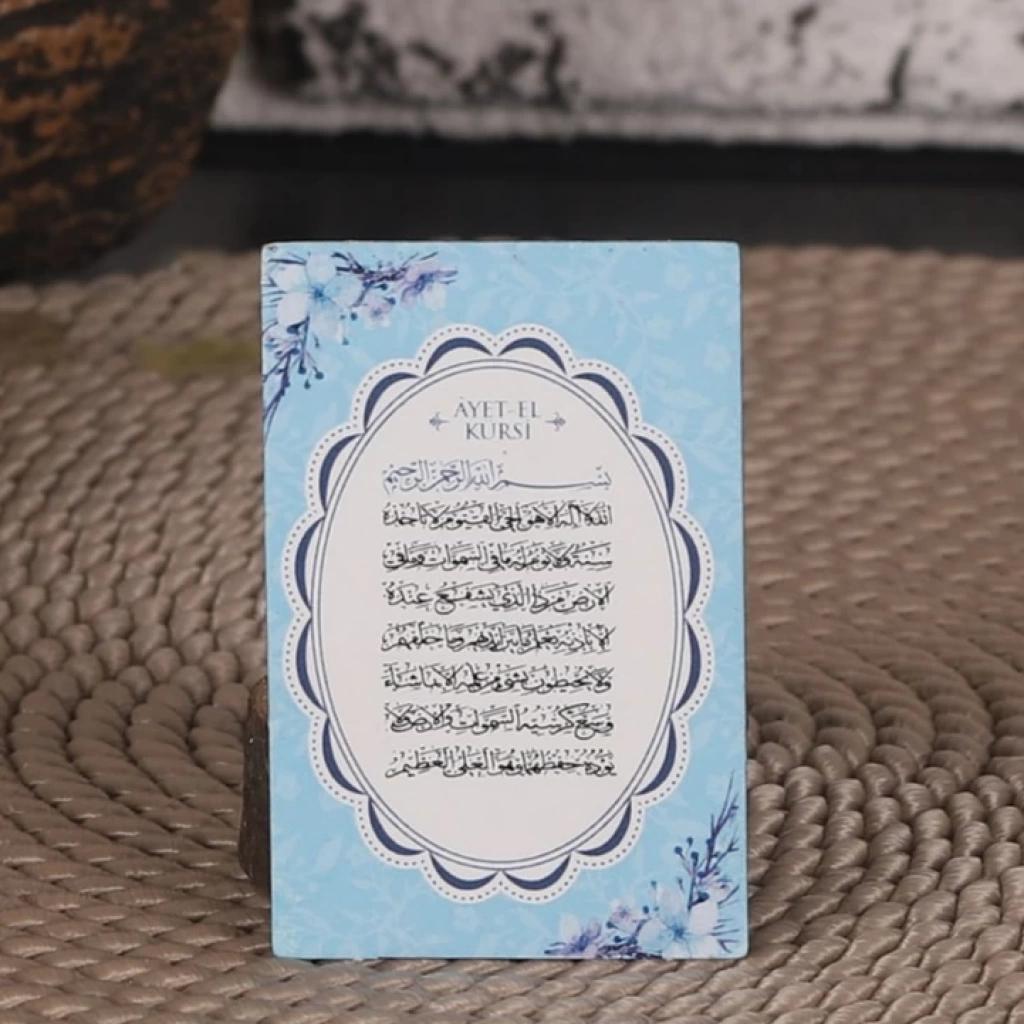 ÂYET-EL
KURSİ
بسم الله الرحمن الرحيم
الله لا اله الا هو الحي القيوم لا تاخذه
سنة ولا نوم له ما في السموات وما في
الارض من ذا الذي يشفع عنده
الا باذنه يعلم ما بين ايديهم وما خلفهم
ولا يحيطون بشيء من علمه الا بما شاء
وسع كرسيه السموات والارض ولا
يؤده حفظهما وهو العلي العظيم